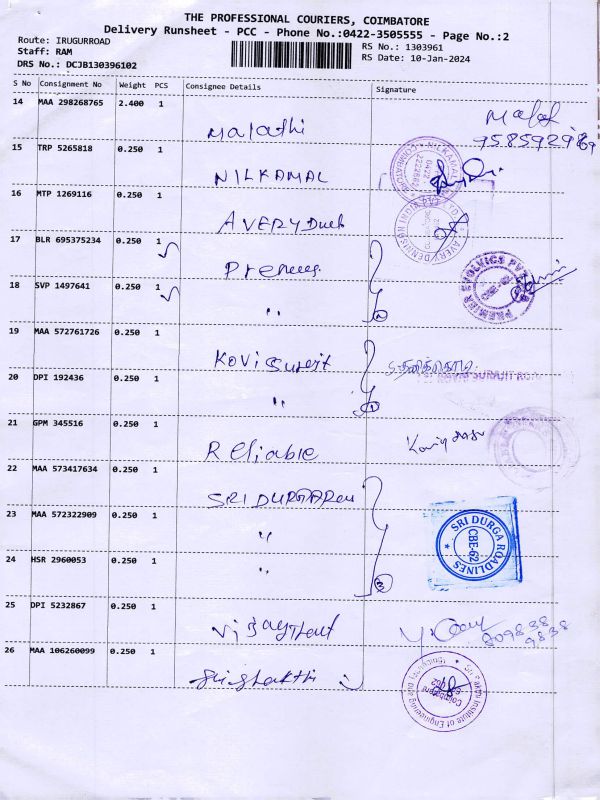 THE PROFESSIONAL COURIERS, COIMBATORE
Delivery Runsheet - PCC - Phone No.:0422-3505555 - Page No.:2
Route: IRUGURROAD
Staff: RAM
DRS No.: DCJB130396102
RS No.: 1303961
RS Date: 10-Jan-2024
S No Consignment No Weight PCS Consignee Details Signature
14 MAA 298268765 2.400 1 Malathi
15 TRP 5265818 0.250 1 NILKAMAL
16 MTP 1269116 0.250 1 AVERY
17 BLR 695375234 0.250 1
18 SVP 1497641 0.250 1 "
PREMIER EVOLVICS PVT
19 MAA 572761726 0.250 1 Kovi
20 DPI 192436 0.250 1 "
21 GPM 345516 0.250 1 Reliable
22 MAA 573417634 0.250 1 SRI DURGA
23 MAA 572322909 0.250 1 "
24 HSR 2960053 0.250 1 "
SRI DURGA ROADLINES
CBE-62
25 DPI 5232867 0.250 1
26 MAA 106260099 0.250 1